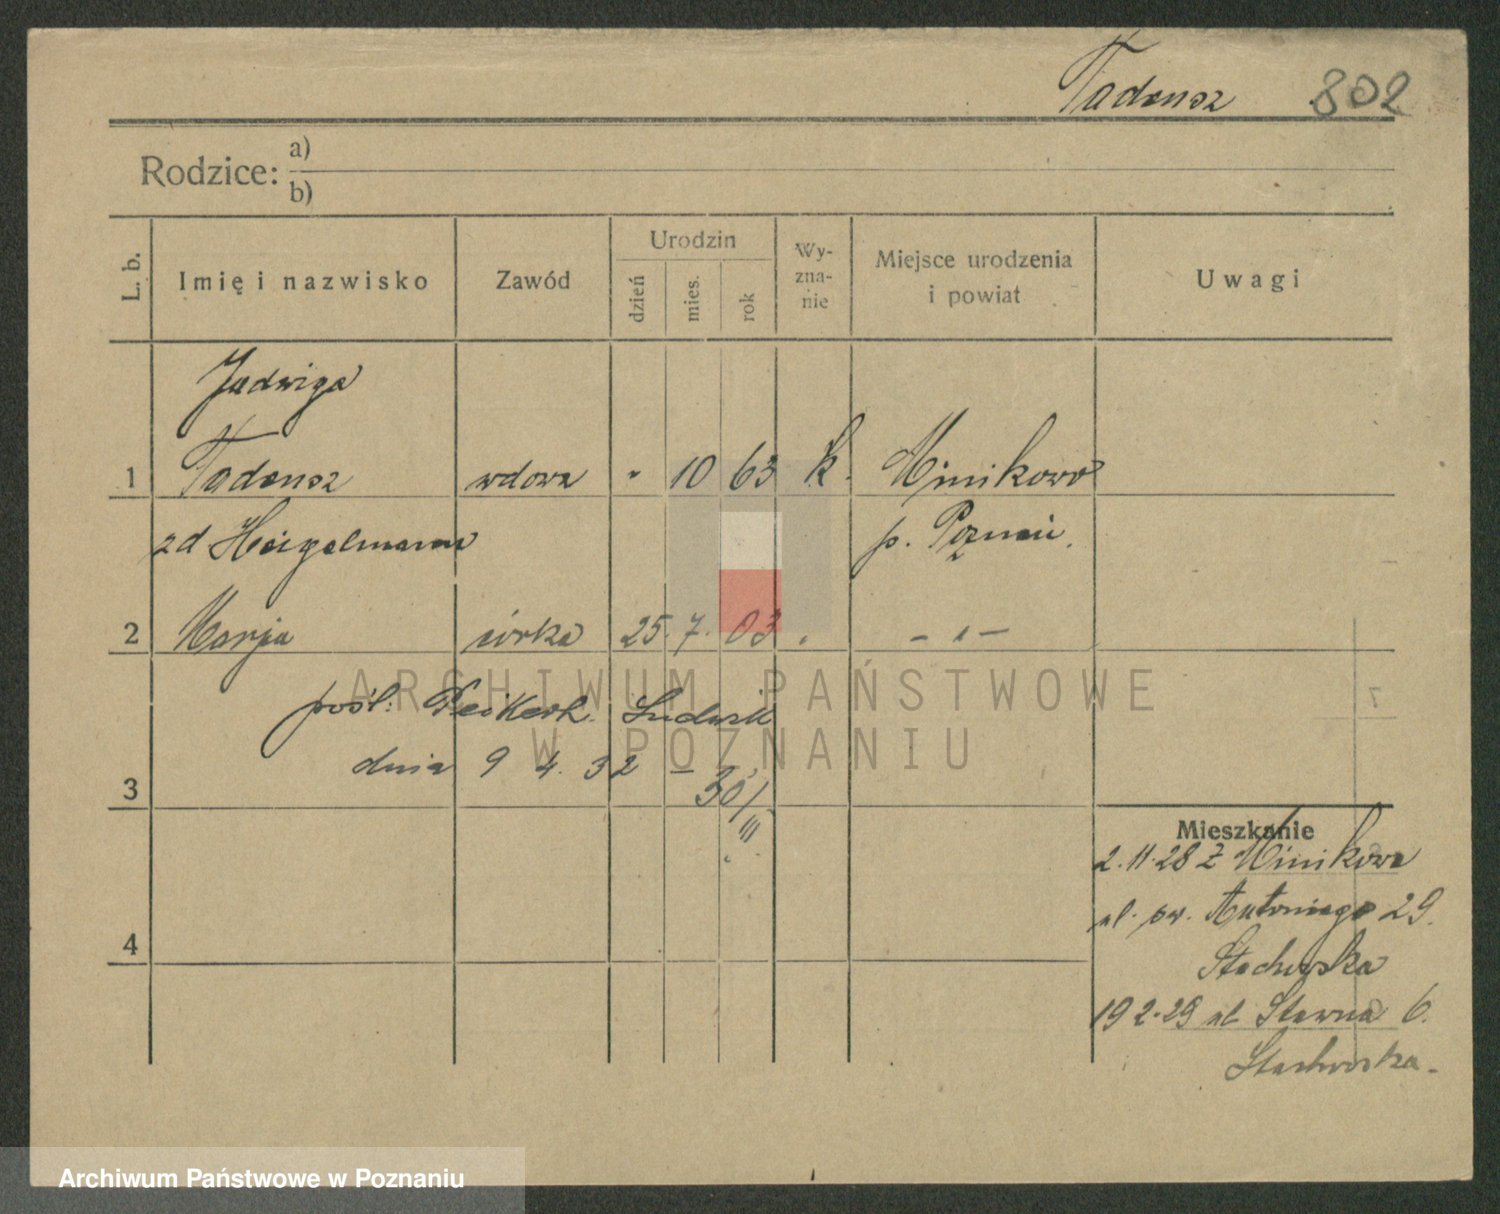 Tadeusz 802
Rodzice: a)
b)
L. b. Imię i nazwisko Zawód Urodzin dzień mies. rok Wy-zna-nie Miejsce urodzenia i powiat Uwagi
Jadwiga
1 Tadeusz wdowa " 10 63 k. Minikowo
zd Heigelmann p. Poznań.
2 Marja córka 25. 7. 03 . – " –
ARCHIWUM PAŃSTWOWE
pośl: Ludwik
W POZNANIU
dnia 9 4. 32 – 30/III
3
Mieszkanie
2.11.28 z Minikowa
ul. św. Antoniego 29.
4
Stachurska
19 2.29 ul Stawna 6.
Stachurska.
Archiwum Państwowe w Poznaniu